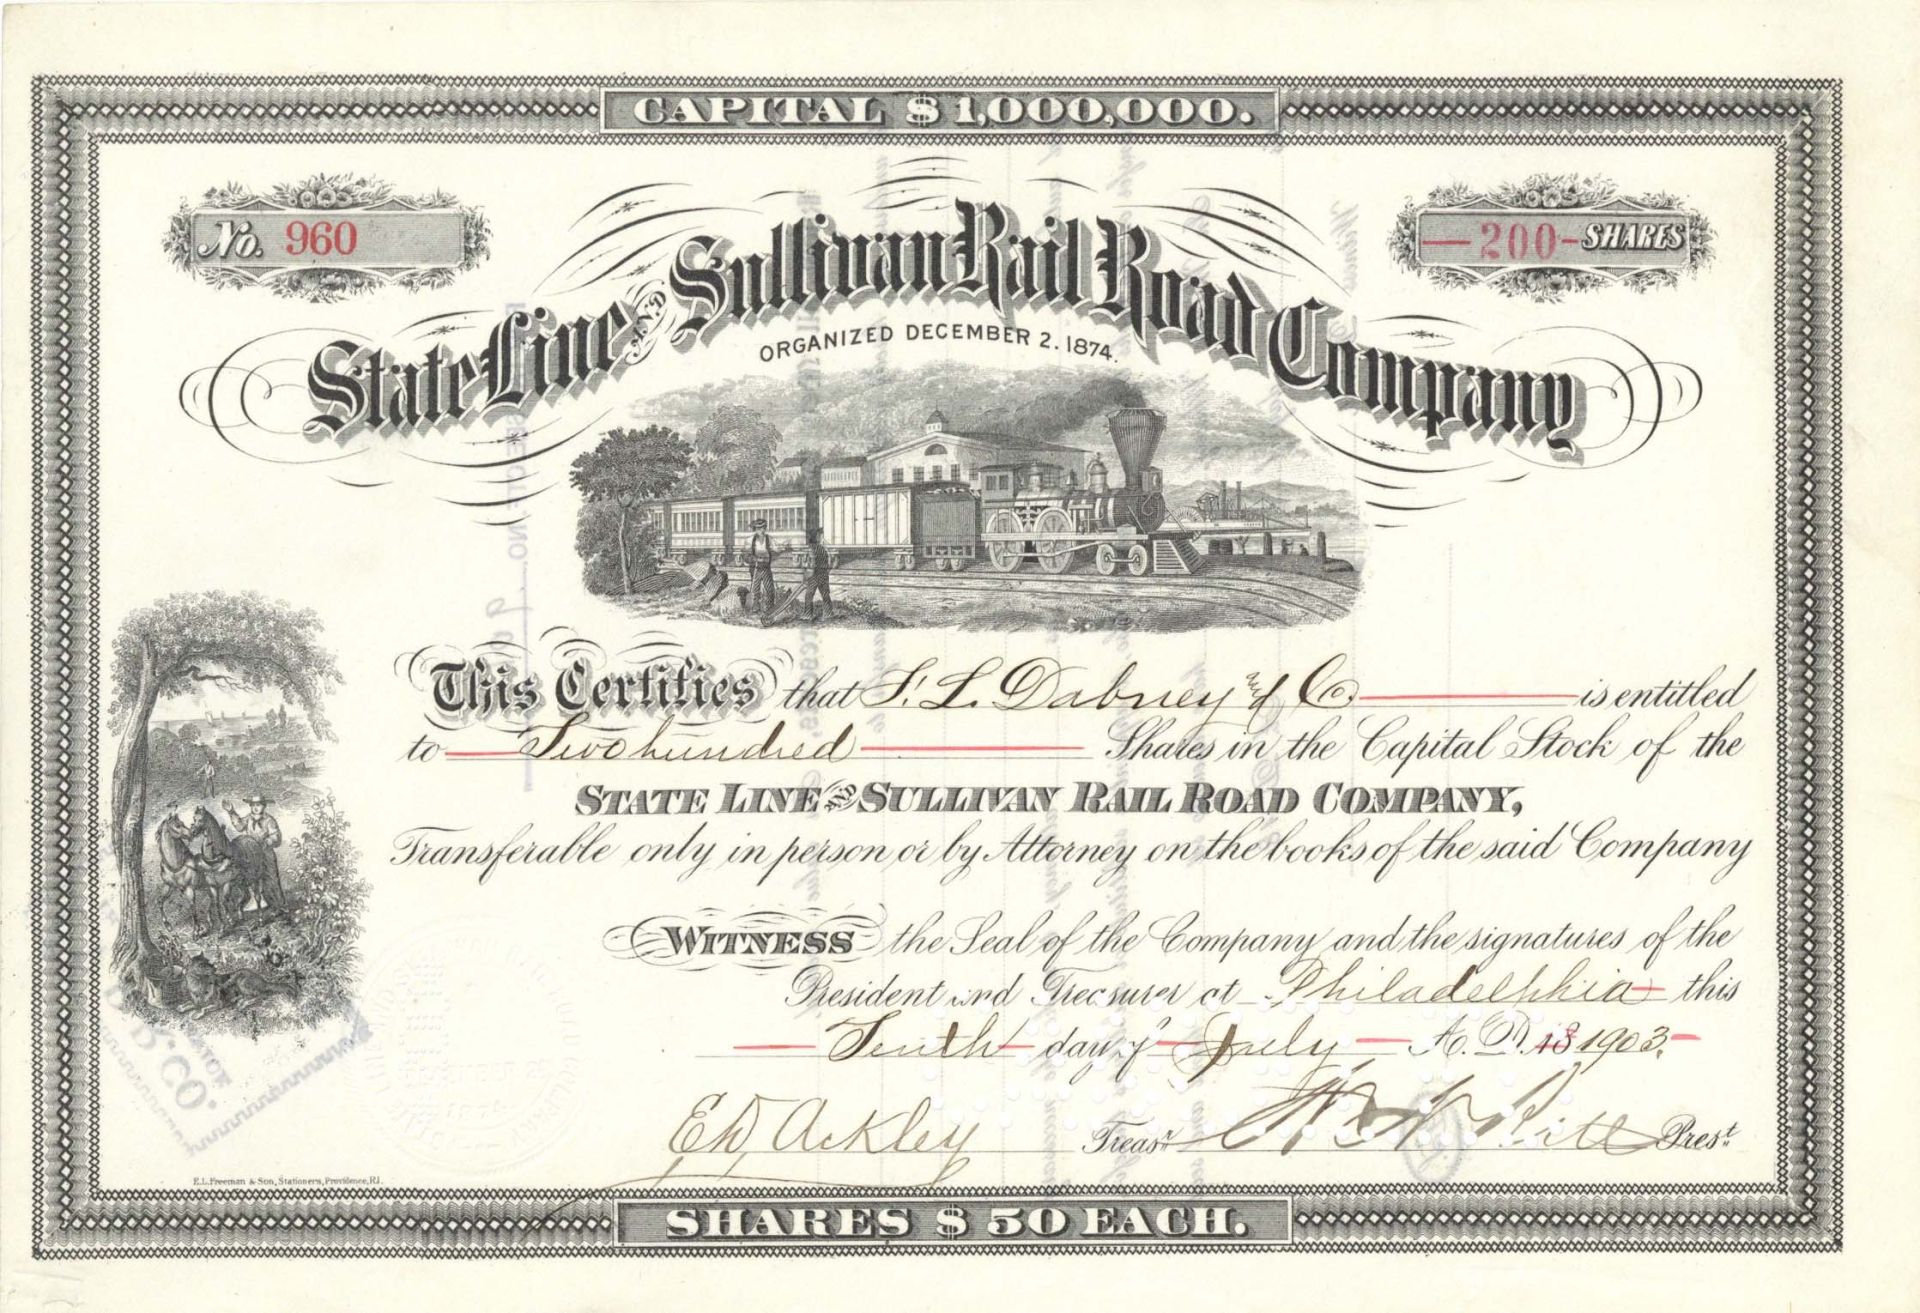 CAPITAL $1,000,000.
No. 960
—200- SHARES
State Line AND Sullivan Rail Road Company
ORGANIZED DECEMBER 2. 1874.
This Certifies that F. L. Dabney and Co. is entitled
to Two hundred Shares in the Capital Stock of the
STATE LINE AND SULLIVAN RAIL ROAD COMPANY,
Transferable only in person or by Attorney on the books of the said Company
WITNESS the Seal of the Company and the signatures of the
President and Treasurer at Philadelphia this
Tenth day of July A.D. 18 1903.
E D, Ackley Treasr. Prest.
E.L. Freeman & Son, Stationers, Providence, R.I.
SHARES $50 EACH.